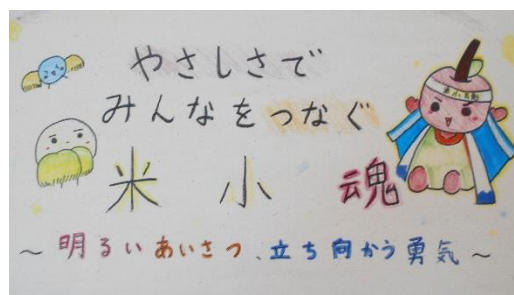 やさしさで
みんなをつなぐ
米小魂
～明るいあいさつ、立ち向かう勇気～